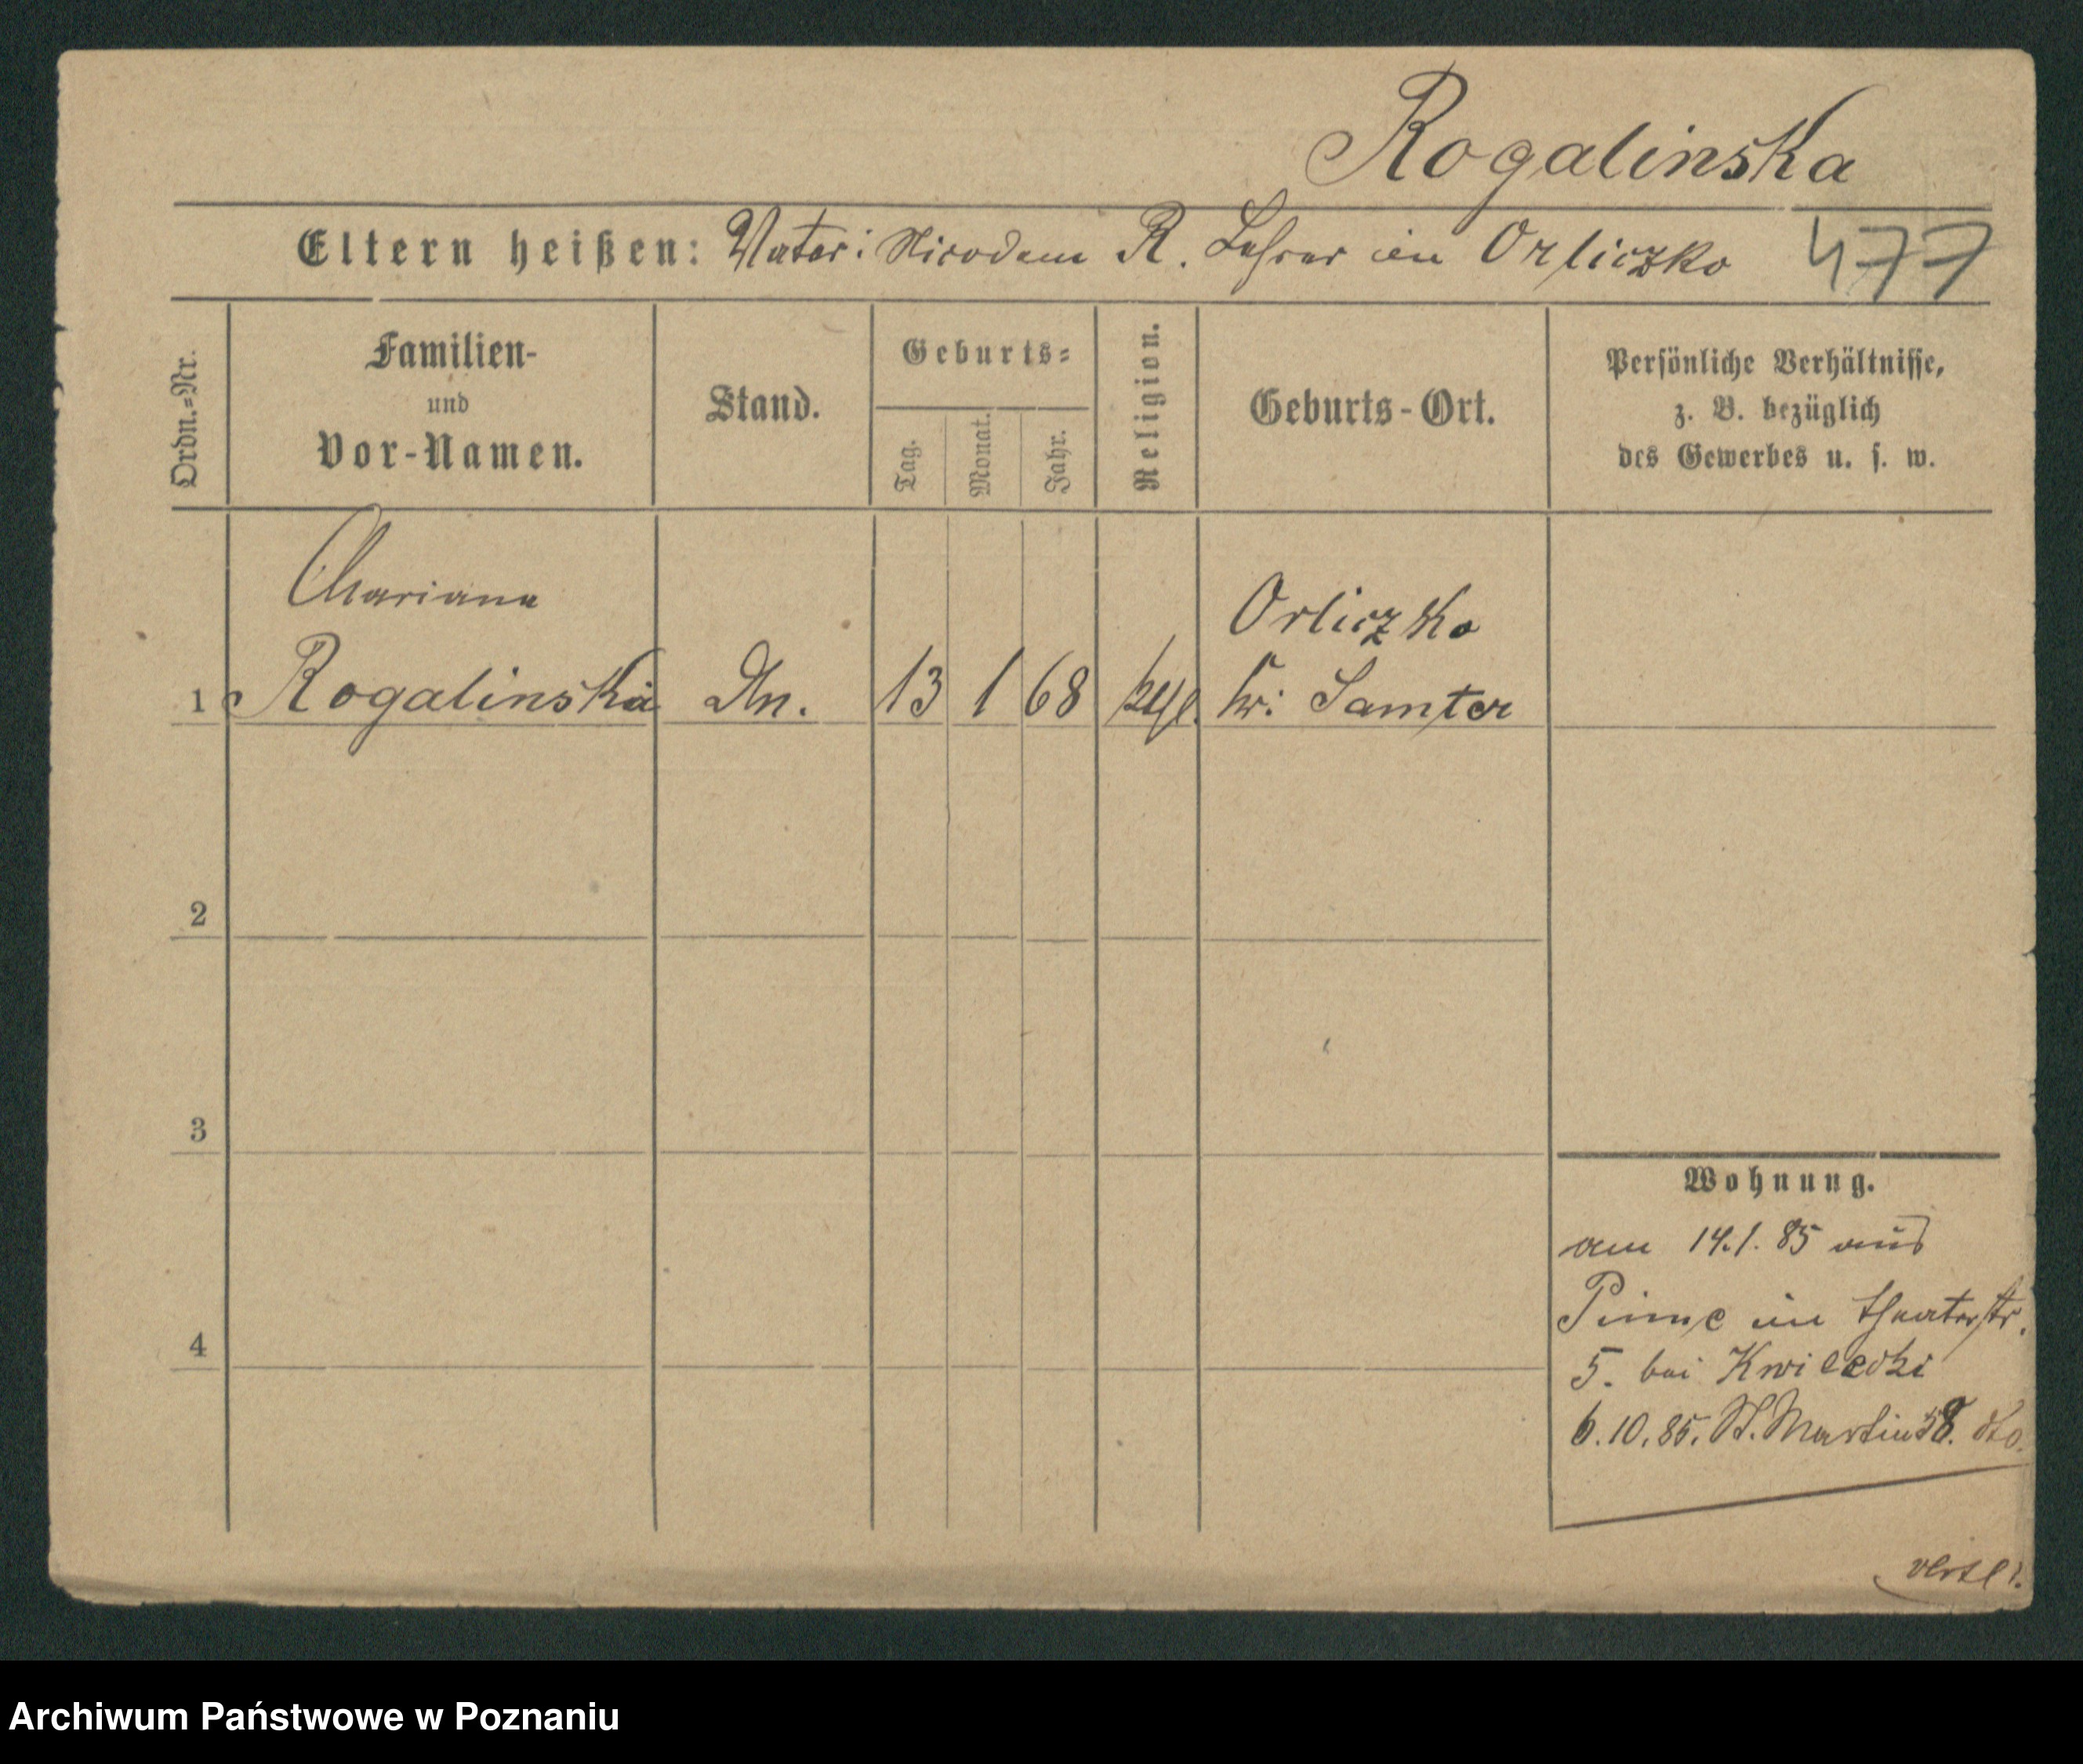 Rogalinska
Eltern heißen: Vater: Nicodem R. Lehrer in Orliczko 477
Ordn.=Nr.
Familien-
und
Vor-Namen.
Stand.
Geburts=
Tag.
Monat.
Jahr.
Religion.
Geburts-Ort.
Persönliche Verhältnisse,
z. B. bezüglich
des Gewerbes u. s. w.
Mariana
Orliczko
1 Rogalinska 13 1 68 Kr: Samter
2
3
4
Wohnung.
am 14.1.85 aus
Pinne in Theaterstr.
5. bei Kwilecki
6.10.85. St. Martin 58. dto.
Archiwum Państwowe w Poznaniu